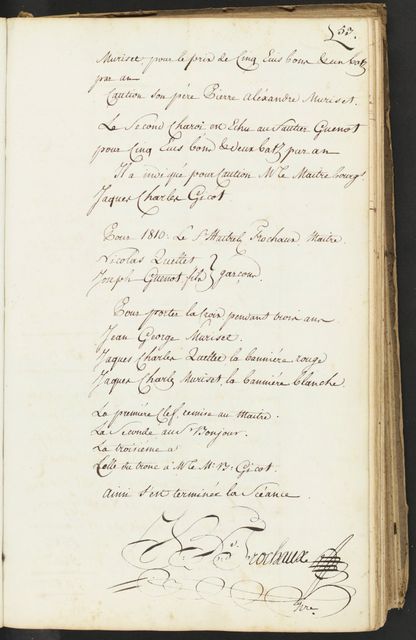 57.
Muriset, pour le prix de Cinq Ecus bons & un batz
par an
Caution son père Pierre Aléxandre Muriset.
Le Second Charoi en Echu au Sautier Guenot
pour Cinq Ecus bons & deux batz par an
Il a indiqué pour Caution Mr le Maitrebourgs
Jaques Charles Gicot
Pour 1810. Le Sr Frochaux Maitre.
Nicolas Quellet
Joseph Guenot fils } garçons.
Pour porter la Croix pendant trois ans
Jean George Muriset.
Jaques Charles Quellet la bannière rouge
Jaques Charles Muriset, la bannière blanche
La première Clef, remise au Maitre.
La Seconde au Sr Bonjour.
La troisième à
Celle du tronc à Mr le Mr B. Gicot.
Ainsi s'en terminée la Séance.
Frochaux